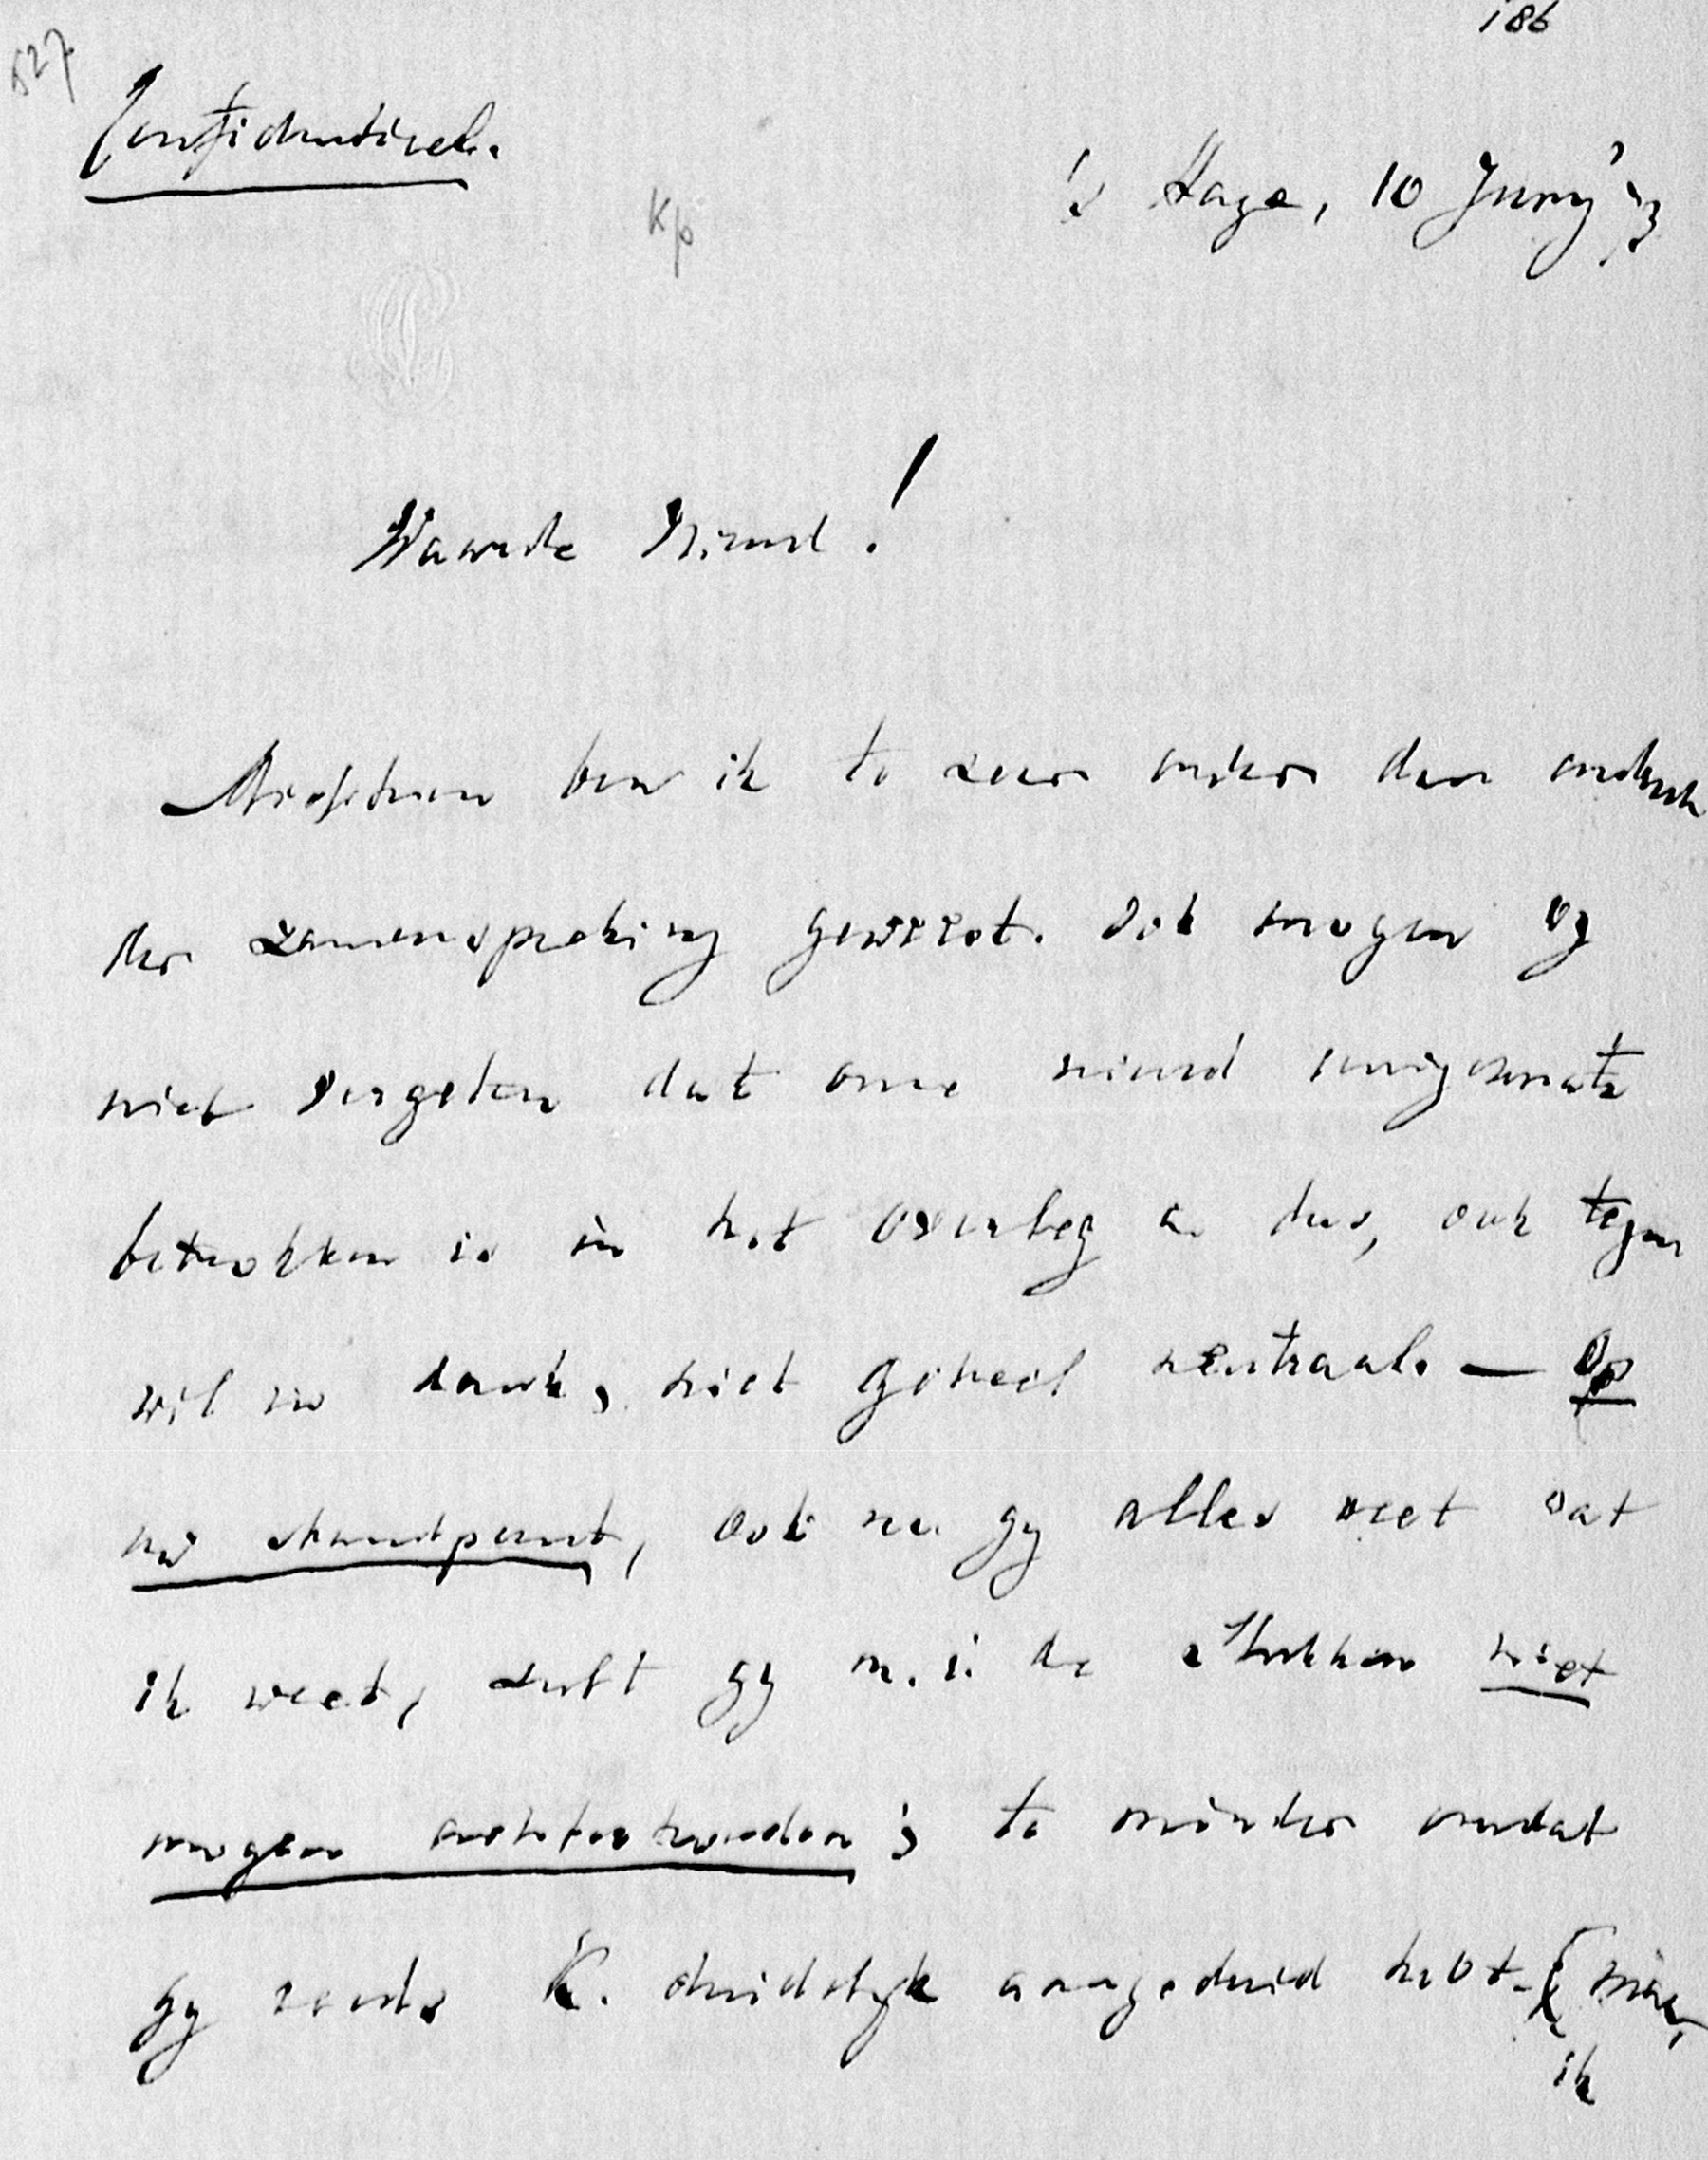 186
527
Confidentieel.
's Hage, 10 Juny '73
Kp
Waarde Vriend!
Misschien ben ik te zeer onder den indruk
der zamenspreking geweest. Ook mogen wy
niet vergeten dat onze vriend eenigermate
betrokken is in het overleg en dus, ook tegen
wil en dank, niet geheel neutraal. — Op
uw standpunt, ook nu gy alles weet wat
ik weet, zult gy m.i. de stukken niet
mogen achterhouden; te minder omdat
gy reeds K. duidelyk aangeduid hebt. (maar,
ik